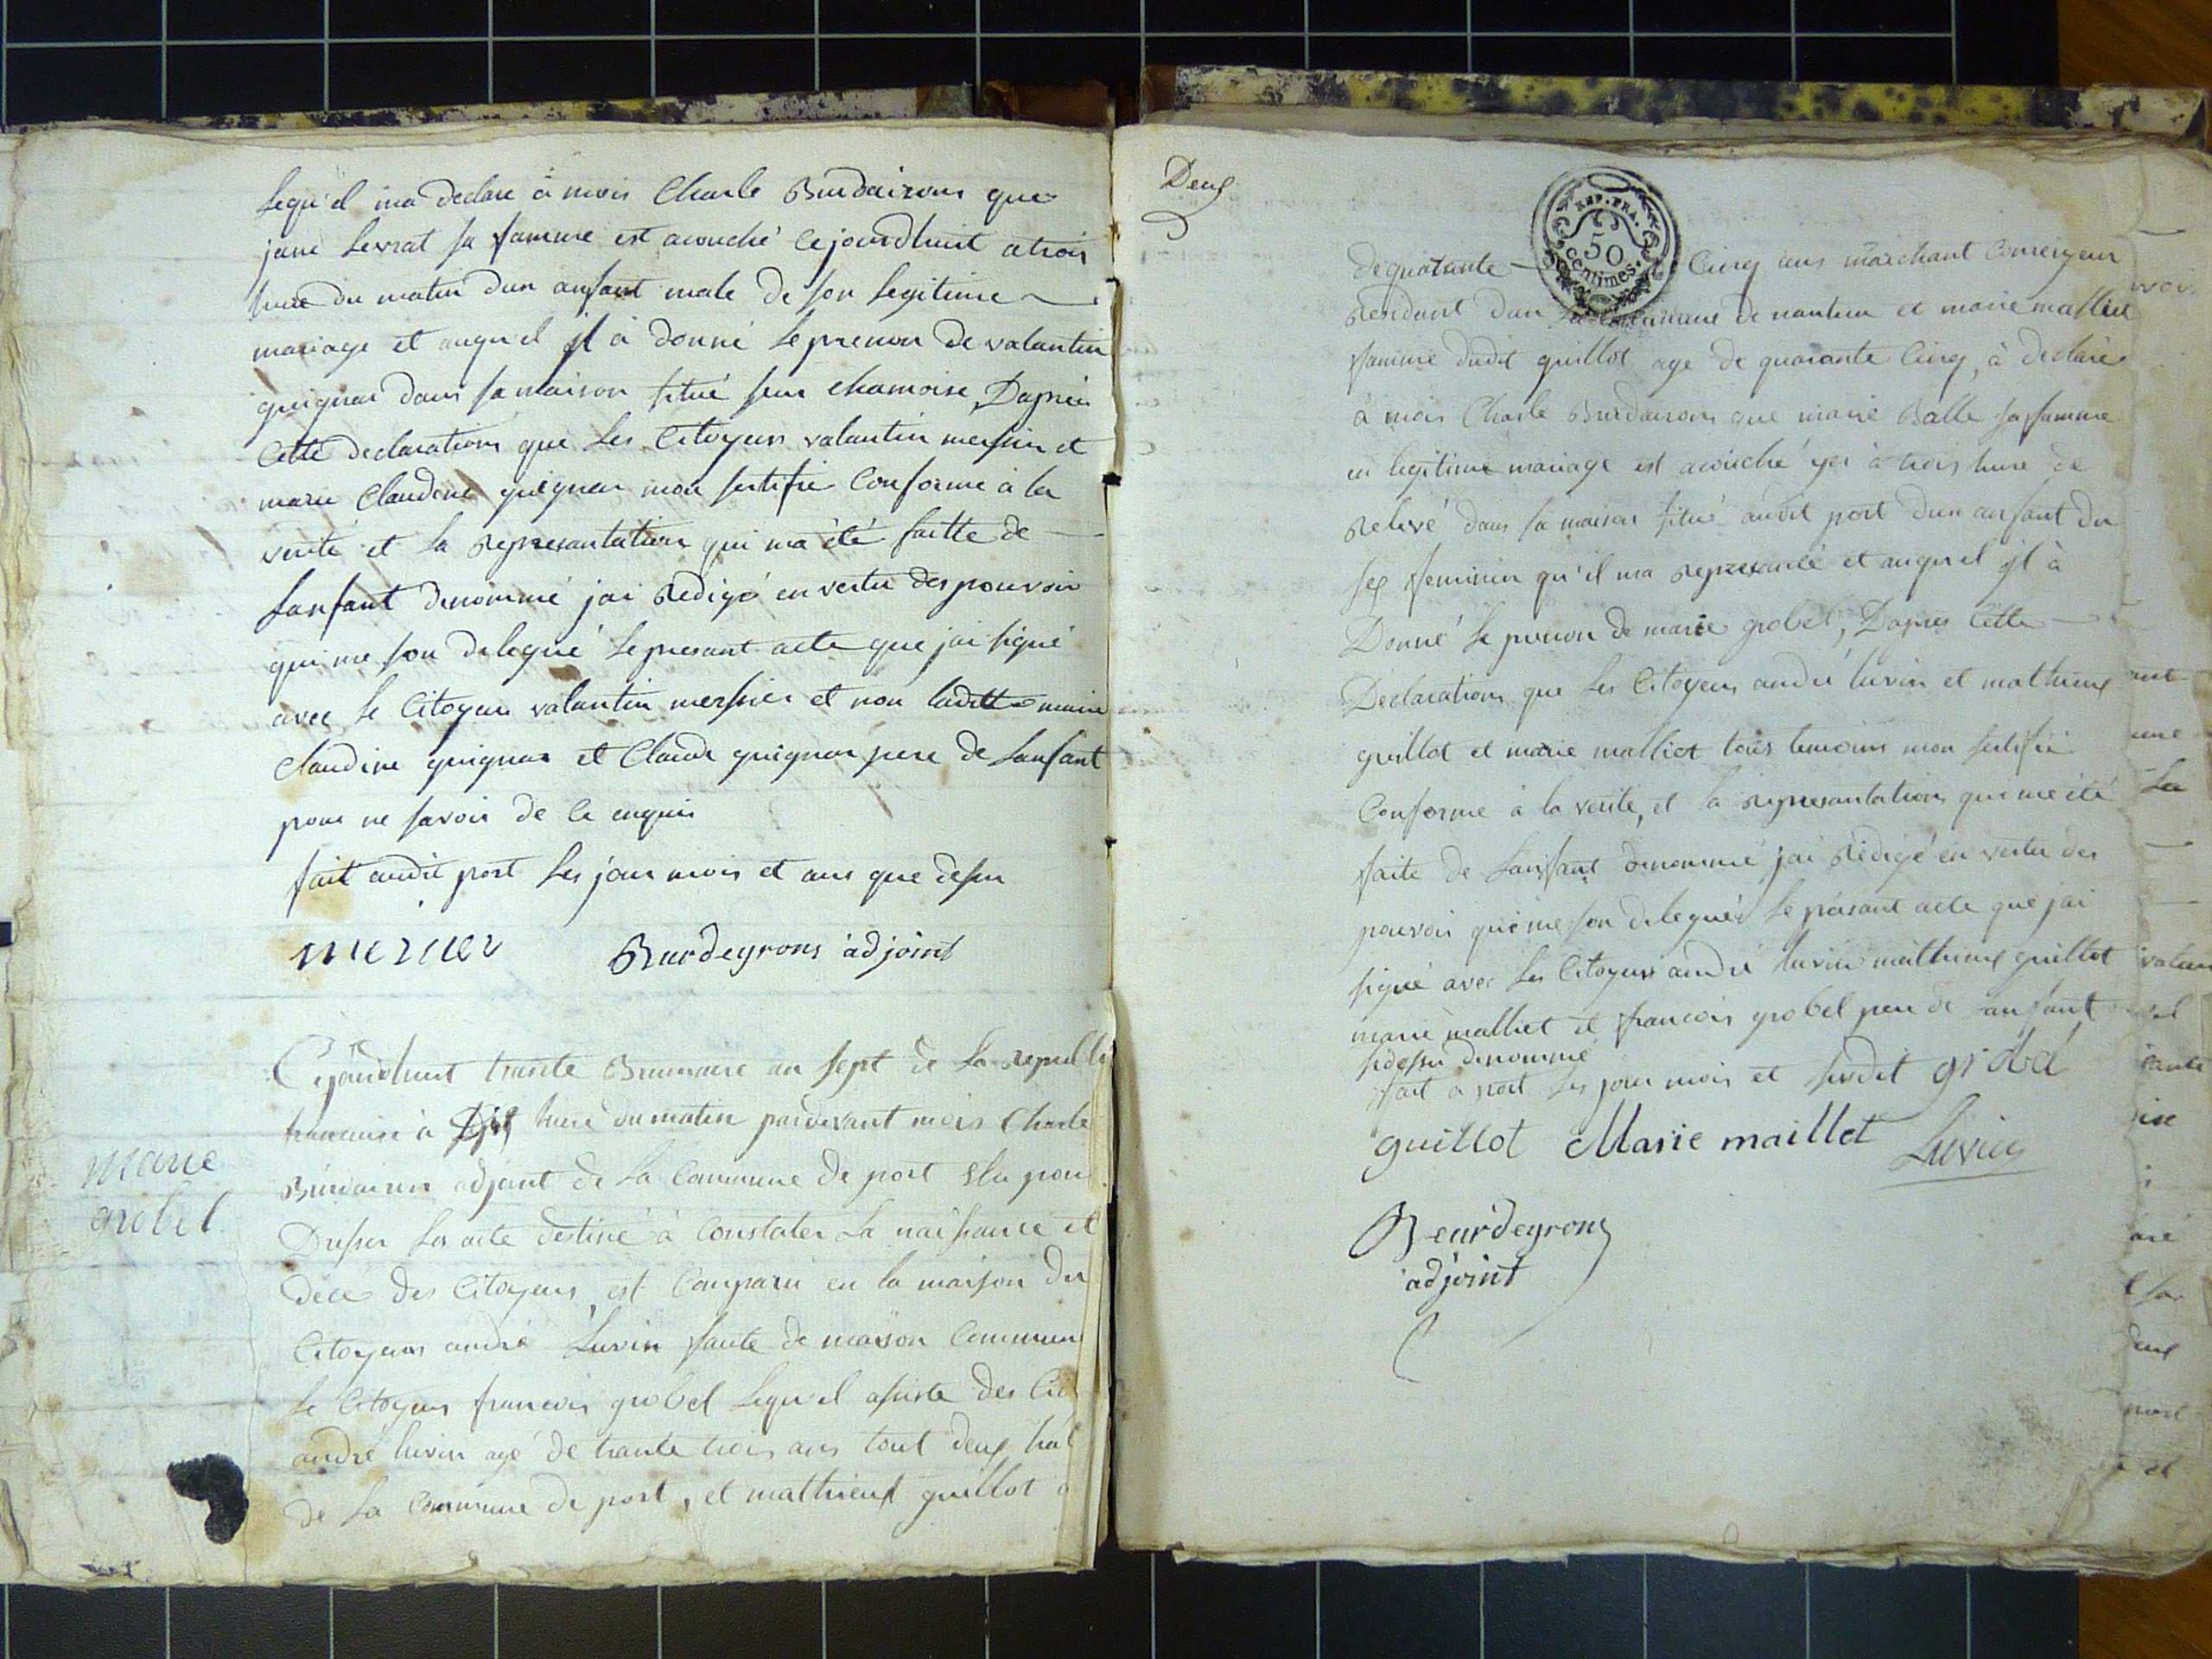 lequ'el ma declare à mois Charle Burdairons que
jane Levrat sa famme est acouché cejourdhuit a trois
hure du matin dun anfant male de son legitime
mariage et auqu'el jl à donné le prenon de valantin
guignar dans sa maison situé sur chamoise, Daprés
Cette declarations que les Citoyens valantin mersier et
marie Claudine guignar mon sertifié Conforme à la
verité et la represantation qui ma été faitte de
lanfant denommé jai Redigé en vertu des pouvoir
qui me son delegué le presant acte que jai signé
avec le Citoyen valantin mersier et non ladite marie
Claudine guignar et Claude guignar pere de lanfant
pour ne savoir de ce enquis
fait audit port les jour mois et ans que desu
mercier Burdeyrons adjoint
Cejourdhuit trante Brumaire an sept de la republi
francaise à hure du matin pardevant mois Charle
Burdairon adjoint de la Commune de port Elu pour
Dresser les acte destiné à Constater la naissance et
decé des Citoyens, est Comparu en la maison du
Citoyens andré Luvin faute de maison Commune
le Citoyens francois grobel lequ'el asiste des Cit
andré luvin agé de trante trois ans tout deux
de la Commune de port, et mathieux guillot a
marie
grobel
Deux
de quatante Cinq ans marchant
REP. FRA.
50
centimes.
Resident dan la Commune de nantua et marie malliet
famme dudit guillot age de quarante Cinq, à declaré
à mois Charle Burdairons que marie Balle sa famme
en legitime mariage est acouché yer à trois hure de
Relevé dans sa maison situé audit port dun anfant du
sex feminin qu'il ma represanté et auquel jl à
Donné le prenon de marie grobel, Daprés Cette
Declarations que les Citoyens andré luvin et mathieux
guillot et marie malliet tous temoins mon sertifié
Conforme à la verité, et la represantations qui me été
faite de lanfant denommé jai Redigé en vertu des
pouvoir qui me son delegué le présant acte que jai
signé avec les Citoyens andré luvin mathieux guillot
marie malliet et francois grobel pere de lanfant
sidessu denommé
fait a port les jour mois et susdit grobel
guillot Marie maillet Luvin
Beurdeyrons
adjoint